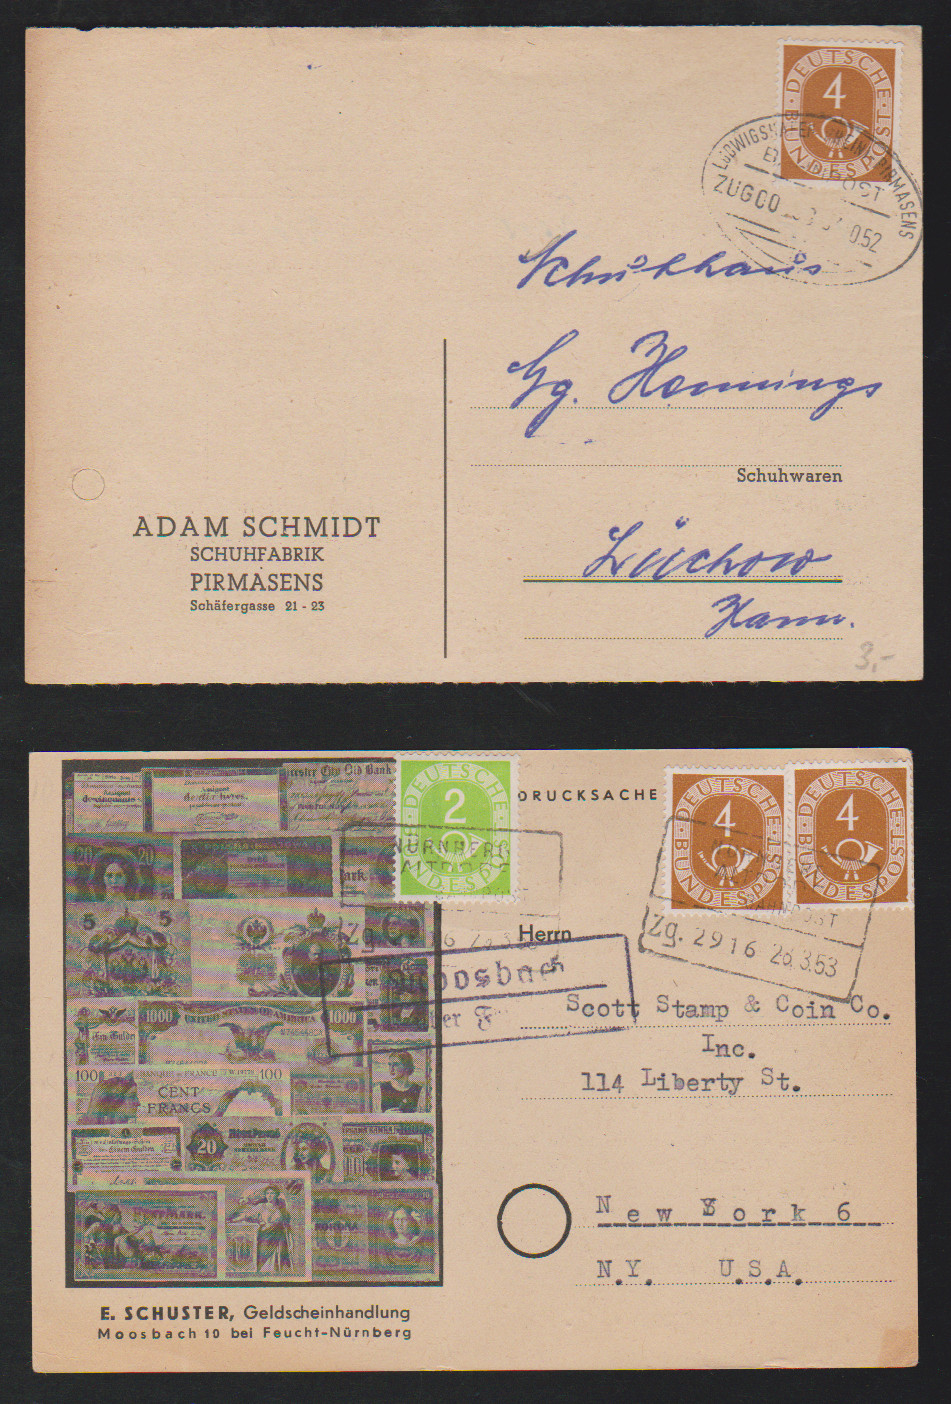 DEUTSCHE
4
BUNDESPOST
LUDWIGSHAFEN (RHEIN) PIRMASENS
ZUG00
0.52
Schuhhaus
Gg. Hennings
Schuhwaren
Lüchow
Hann.
3,-
ADAM SCHMIDT
SCHUHFABRIK
PIRMASENS
Schäfergasse 21 - 23
DEUTSCHE
2
BUNDESPOST
DRUCKSACHE
DEUTSCHE
4
BUNDESPOST
DEUTSCHE
4
BUNDESPOST
NÜRNBERG
Zg.
BAHNPOST
Zg. 2916 26.3.53
Herrn
Moosbach
Scott Stamp & Coin Co.
Inc.
114 Liberty St.
New York 6
N.Y. U.S.A.
20 20
5 5
1000 UNITED STATES OF AMERICA 1000
100 100
CENT
FRANCS
20
E. SCHUSTER, Geldscheinhandlung
Moosbach 10 bei Feucht-Nürnberg